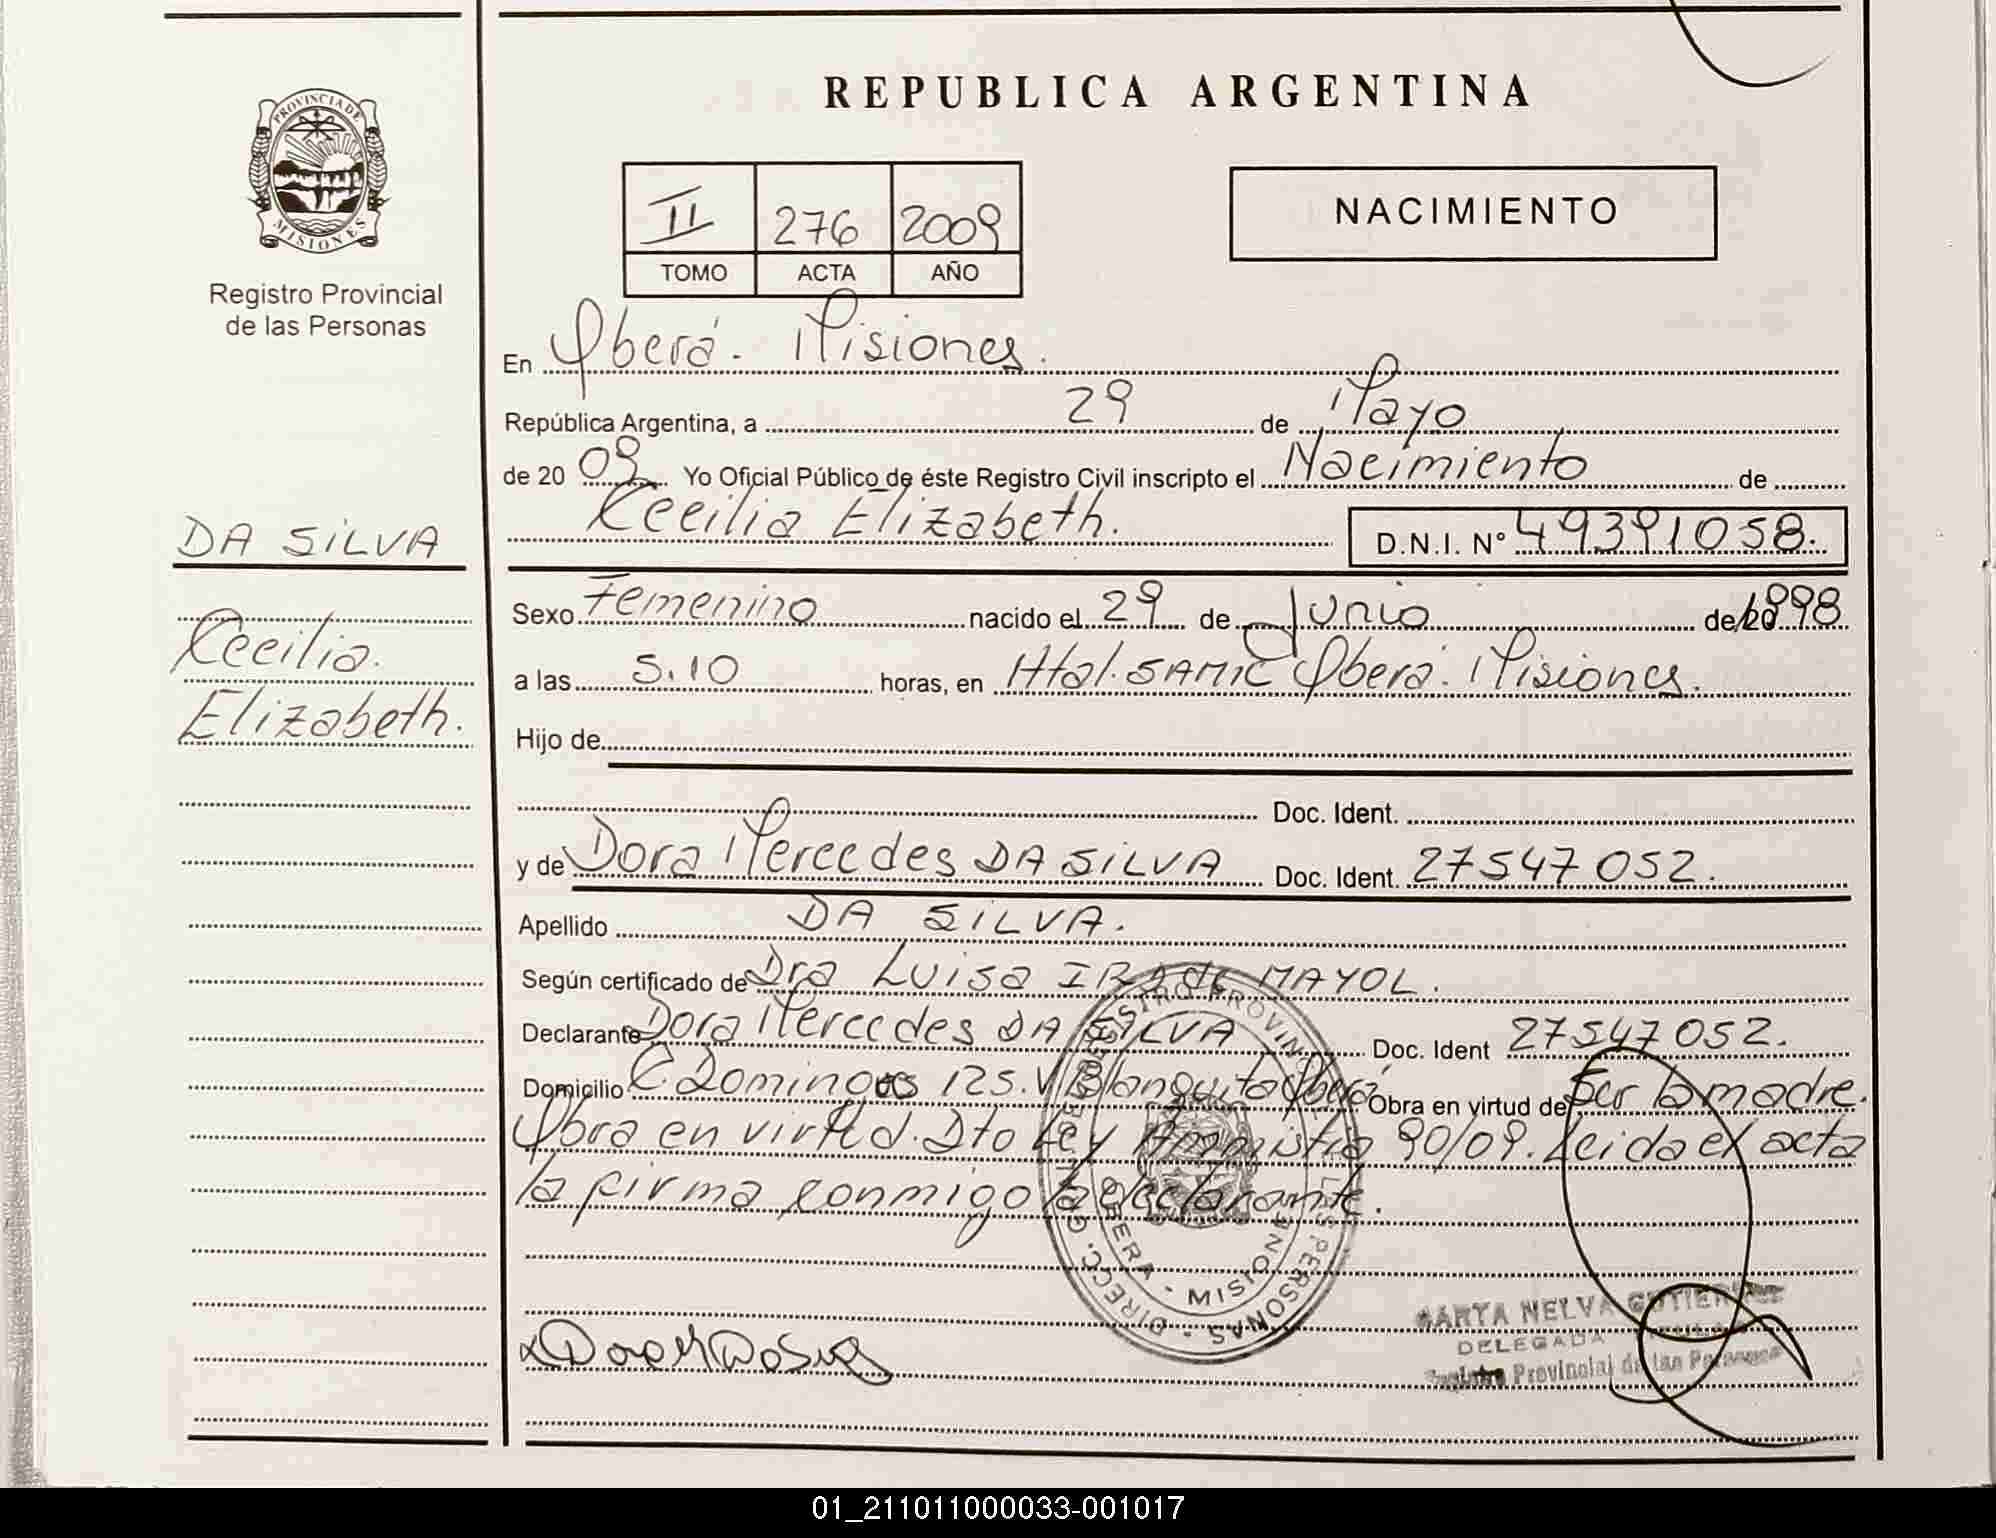 REPUBLICA ARGENTINA
PROVINCIA DE
MISIONES
Registro Provincial
de las Personas
II 276 2009
TOMO ACTA AÑO
NACIMIENTO
En Oberá. Misiones.
República Argentina, a 29 de Mayo
de 20 09 Yo Oficial Público de éste Registro Civil inscripto el Nacimiento de
Cecilia Elizabeth. D.N.I. N° 49391058.
DA SILVA
Cecilia
Elizabeth.
Sexo Femenino nacido el 29 de Junio de 1998
a las 5.10 horas, en Htal. SAMIC Oberá. Misiones.
Hijo de
Doc. Ident.
y de Dora Mercedes DA SILVA Doc. Ident. 27547052.
Apellido DA SILVA.
Según certificado de Dra Luisa IRA de MAYOL.
Declarante Dora Mercedes DA SILVA Doc. Ident 27547052.
Domicilio C. Domingos 125. V Blanquita Oberá Obra en virtud de Ser la madre.
Obra en virtud. Dto Ley Amnistia 90/09. Leida el acta
la firma conmigo la declarante.
DIRECC. GRAL. REGISTRO PROVINCIAL DE LAS PERSONAS
OBERA - MISIONES
MARTA NELVA GUTIERREZ
DELEGADA TITULAR
Registro Provincial de las Personas
01_211011000033-001017